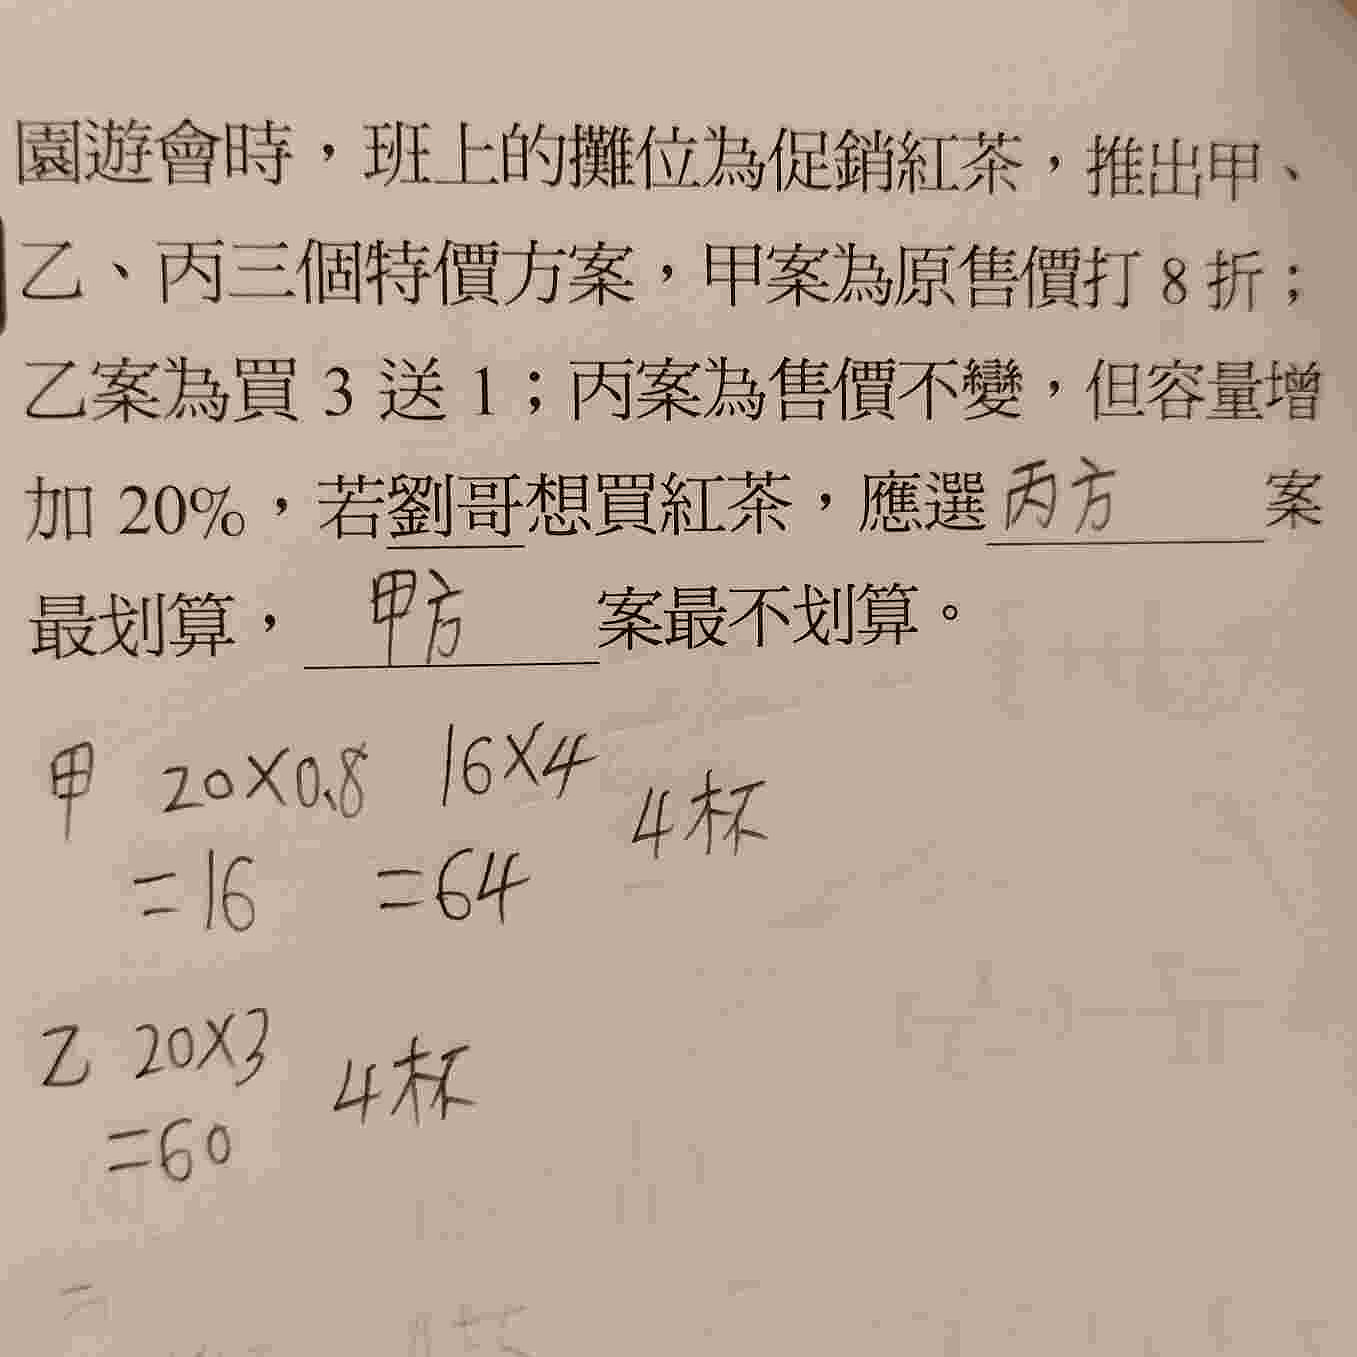 園遊會時，班上的攤位為促銷紅茶，推出甲、
乙、丙三個特價方案，甲案為原售價打 8 折；
乙案為買 3 送 1；丙案為售價不變，但容量增
加 20%，若劉哥想買紅茶，應選丙方案
最划算，甲方案最不划算。
甲 20×0.8 16×4 4杯
=16 =64
乙 20×3 4杯
=60